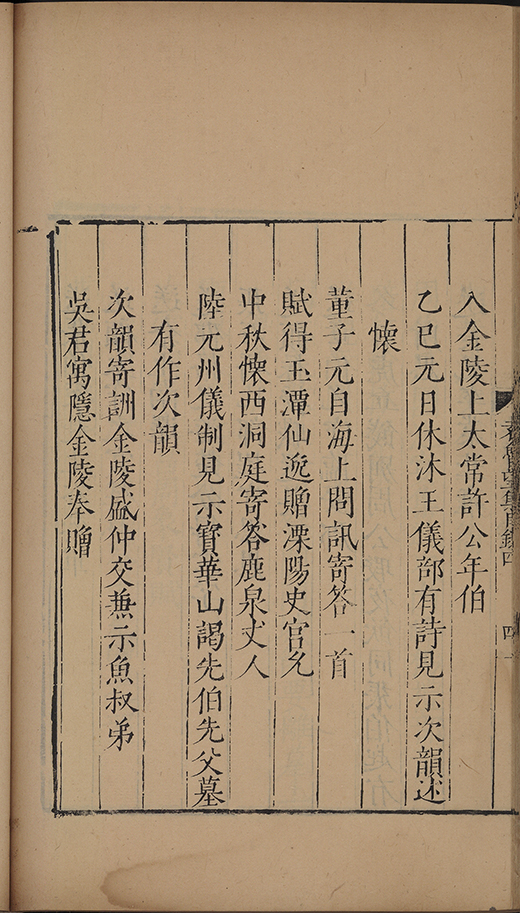 入金陵上太常許公年伯
乙巳元日休沐王儀部有詩見示次韻述
懷
董子元自海上問訊寄答一首
賦得玉潭仙逸贈溧陽史官允
中秋懷西洞庭寄答鹿泉丈人
陸元州儀制見示寳華山謁先伯先父墓
有作次韻
次韻寄詶金陵盛仲交兼示魚叔弟
吳君寓隱金陵奉贈
目錄四
四